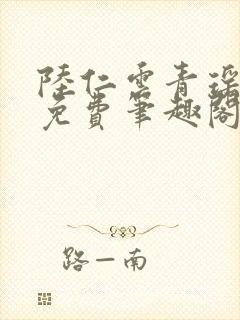 陸仁雲青瑶
免費筆趣閣
路一南